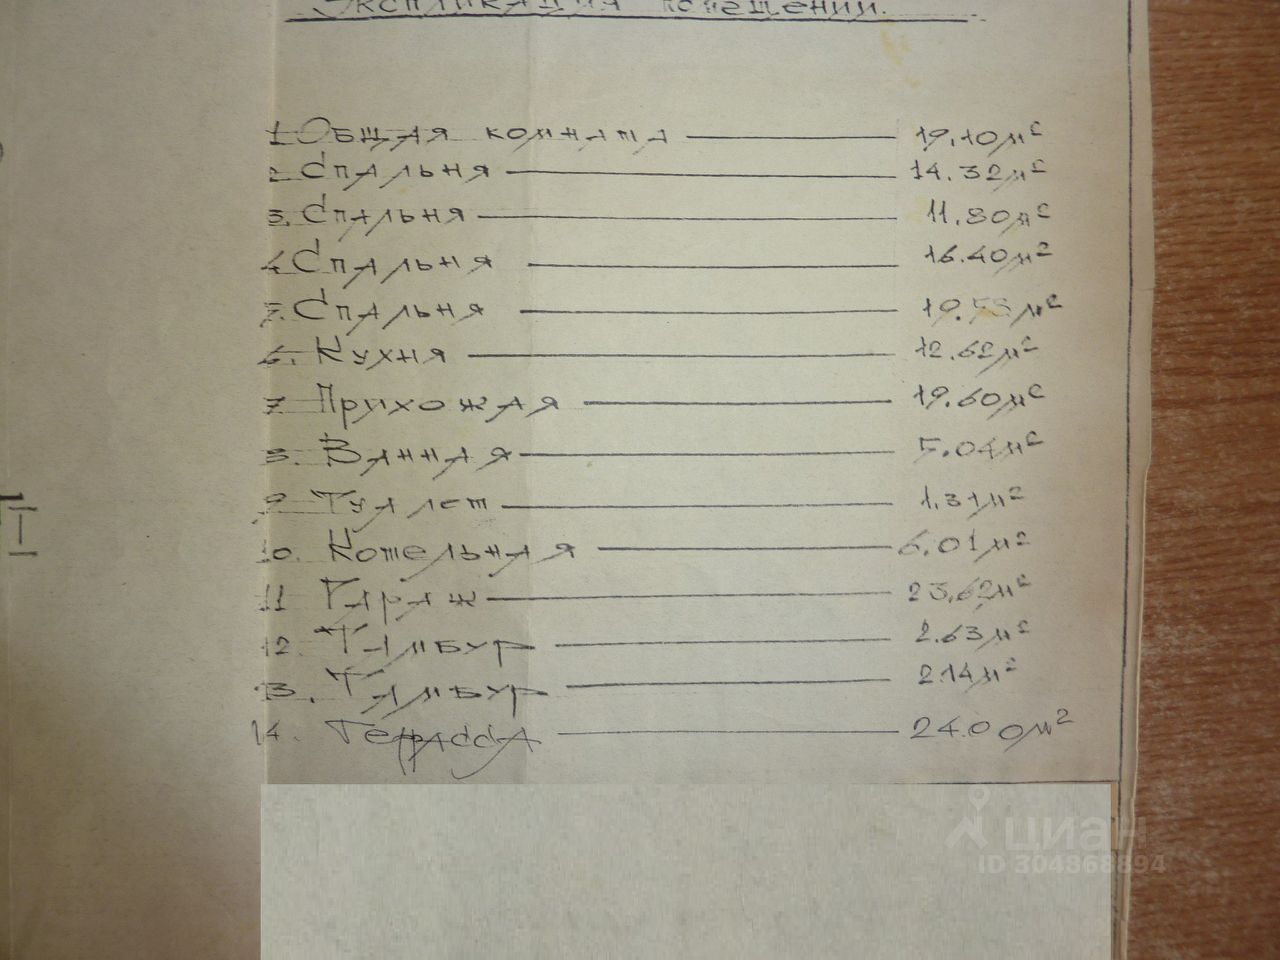 Экспликация помещений.
1. Общая комната 19.10 м²
2. Спальня 14.32 м²
3. Спальня 11.80 м²
4. Спальня 16.40 м²
5. Спальня м²
6. Кухня 12.62 м²
7. Прихожая 19.60 м²
8. Ванная 5.04 м²
9. Туалет 1.31 м²
10. Котельная 6.01 м²
11 Гараж 23.62 м²
12 Тамбур 2.63 м²
13. Тамбур 2.14 м²
14. Терасса 24.00 м²
циан
ID 304868894